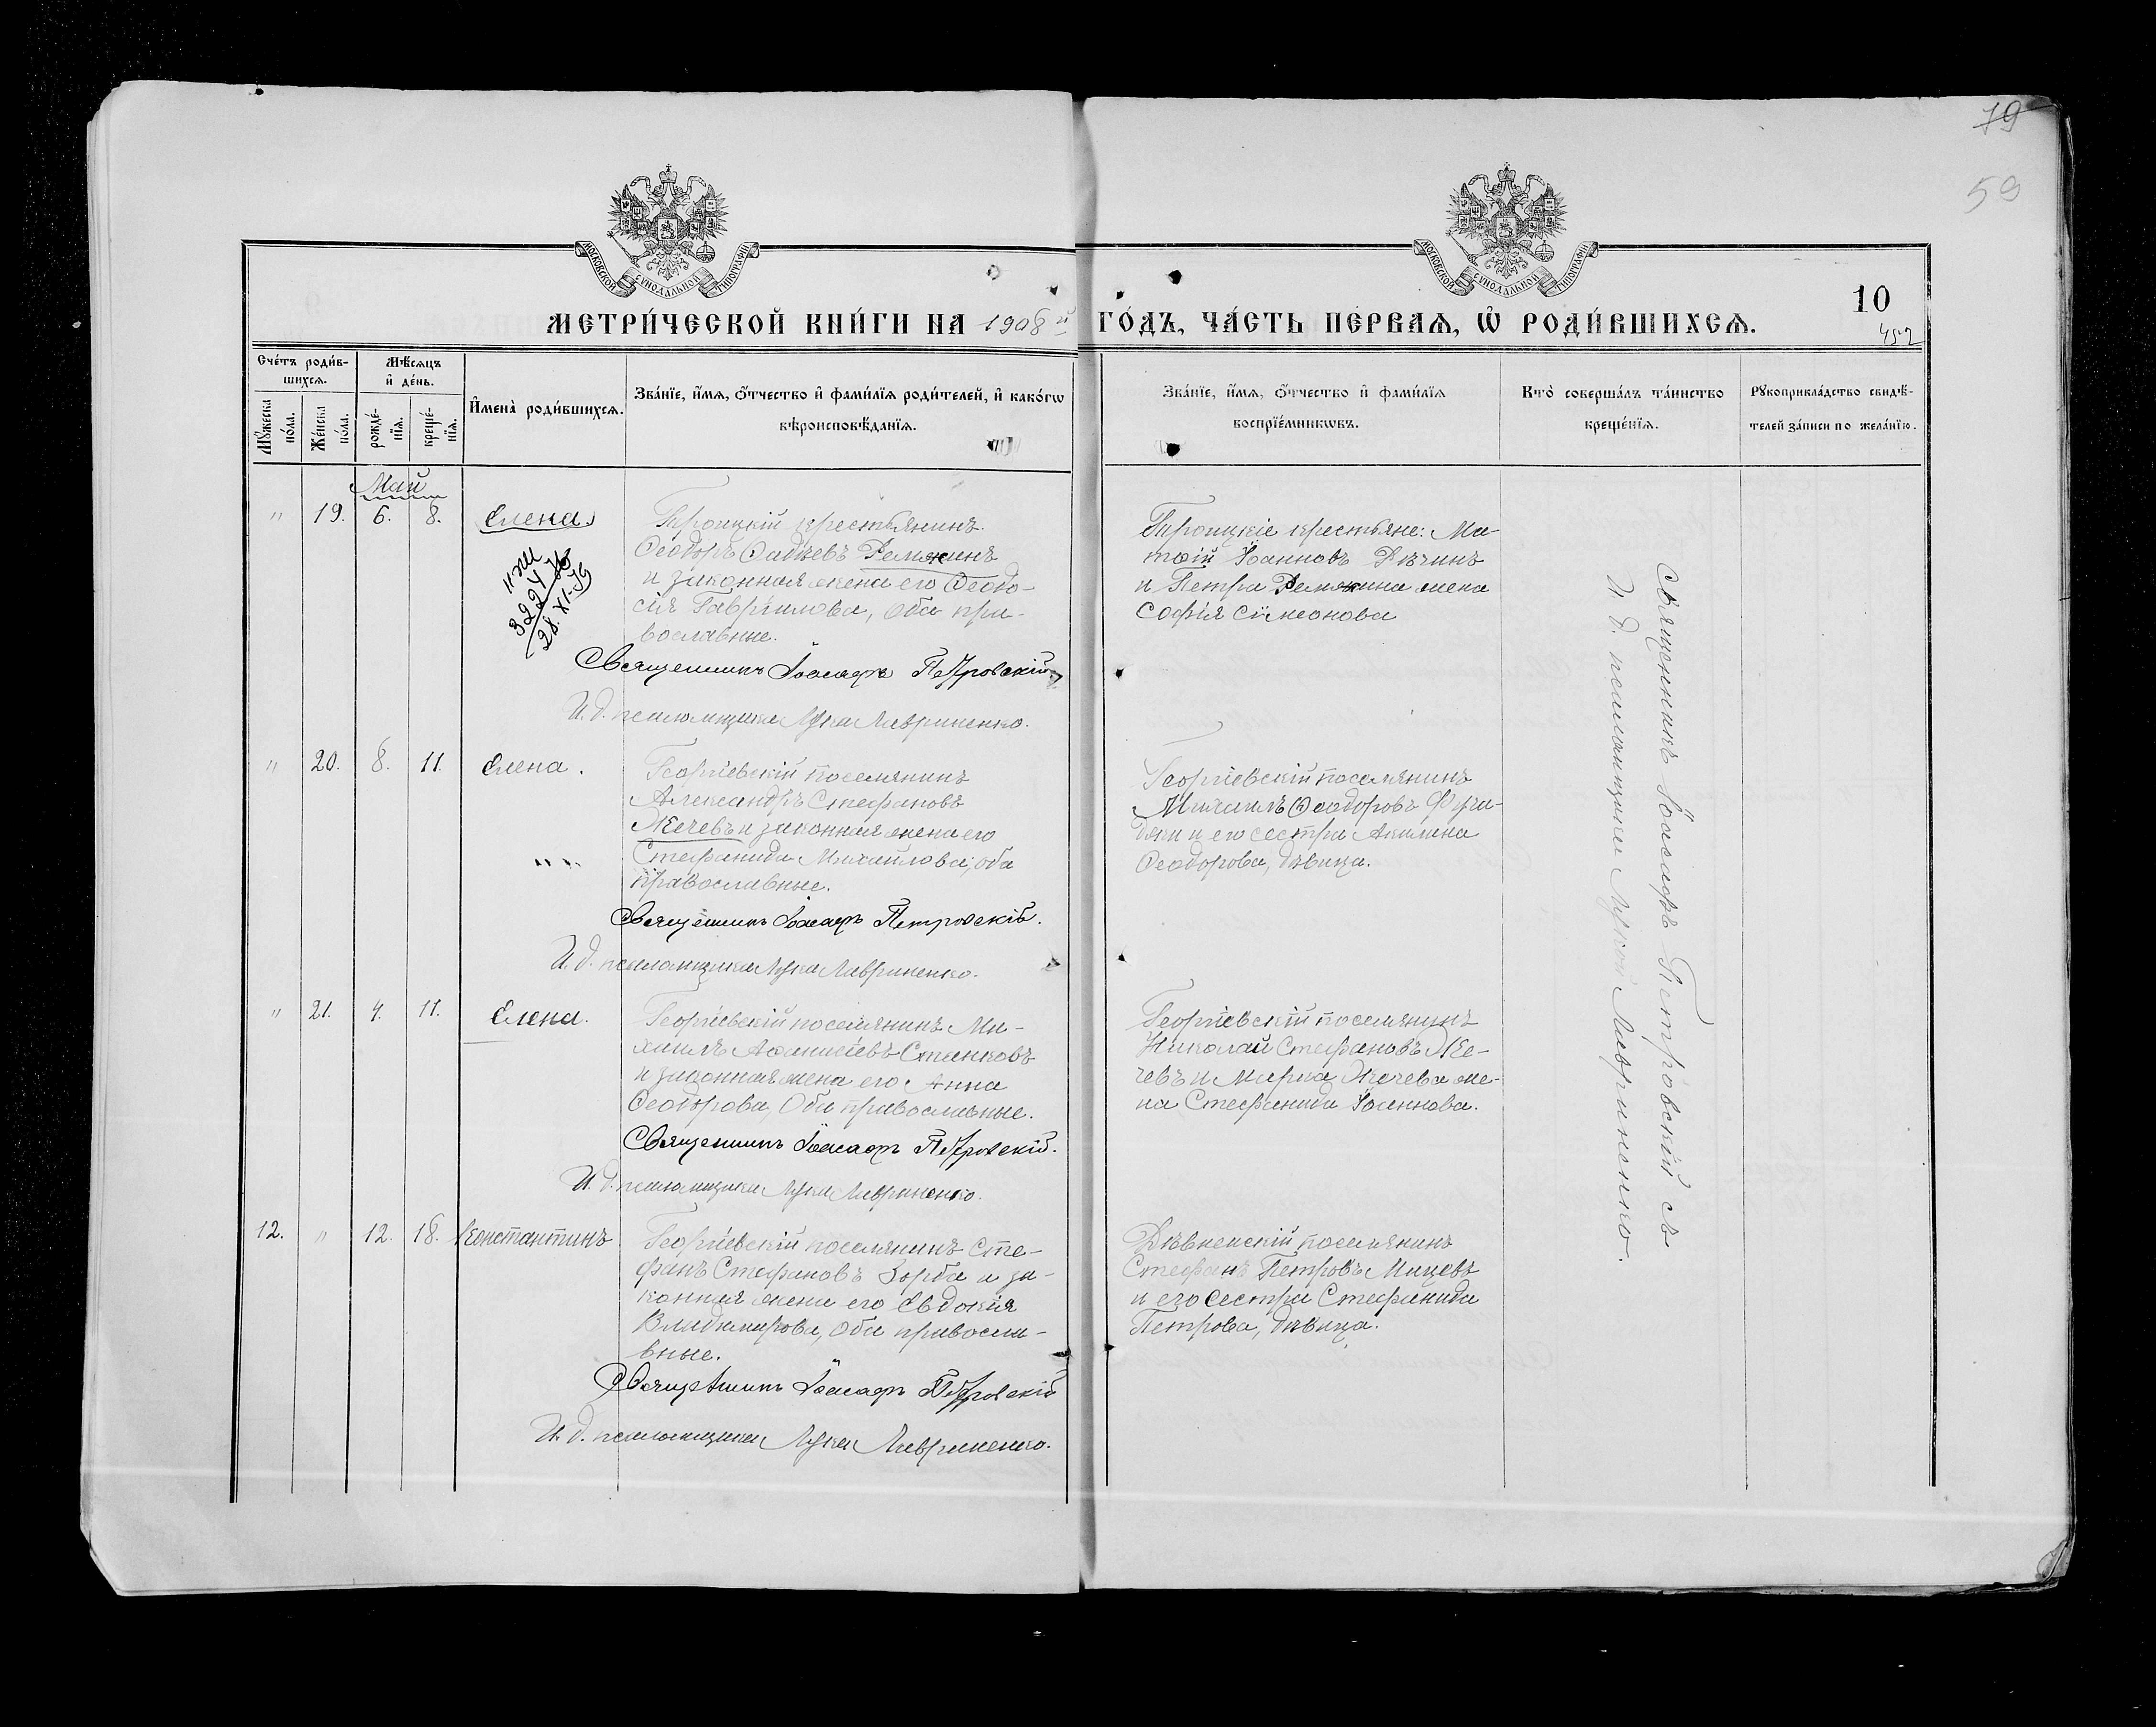 79
59
МОСКОВСКОЙ СѴНОДАЛЬНОЙ ТИПОГРАФІИ
МОСКОВСКОЙ СѴНОДАЛЬНОЙ ТИПОГРАФІИ
10
452
МЕТРИ́ЧЕСКОЙ КНИ́ГИ НА 1908 й ГО́ДЪ, ЧА́СТЬ ПЕ́РВАѦ, Ѡ҆ РОДИ́ВШИХСѦ.
Сче́тъ роди́в-
шихсѧ.
Мѣ́сѧцъ
и҆ де́нь.
Мꙋ́жеска
по́ла.
Же́нска
по́ла.
рожде́-
нїѧ.
креще́-
нїѧ.
И҆мена̀ роди́вшихсѧ.
Зва́нїе, и҆́мѧ, ѻ҆́тчество и҆ фами́лїѧ роди́телей, и҆ како́гѡ
вѣроисповѣ́данїѧ.
Зва́нїе, и҆́мѧ, ѻ҆́тчество и҆ фами́лїѧ
воспрїе́мникѡвъ.
Кто̀ соверша́лъ та́инство
креще́нїѧ.
Рꙋкоприкла́дство свидѣ́-
телей за́писи по жела́нїю.
Май
" 19. 6. 8. Елена.
3224
28.XI-
Троицкій крестьянинъ
Ѳеодоръ Ѳадѣевъ Ремжинъ
и законная жена его Ѳеодо-
сія Гавріилова, оба пра-
вославные.
Священникъ Іоасафъ Петровскій.
И. д. псаломщика Лука Лавриненко.
Троицкіе крестьяне: Ма-
тѳій Іоанновъ Рѣчинъ
и Петра Ремжина жена
Софія Сімеонова
" 20. 8. 11. Елена.
Георгіевскій поселянинъ
Александръ Стефановъ
Кечевъ и законная жена его
Стефанида Михайлова, оба
православные.
Священникъ Іоасафъ Петровскій.
И. д. псаломщика Лука Лавриненко.
Георгіевскій поселянинъ
Михаилъ Ѳеодоровъ
и его сестра Акилина
Ѳеодорова, дѣвица.
" 21. 4. 11. Елена.
Георгіевскій поселянинъ Ми-
хаилъ Аѳанасіевъ Станковъ
и законная жена его Анна
Ѳеодорова, оба православные.
Священникъ Іоасафъ Петровскій.
И. д. псаломщика Лука Лавриненко.
Георгіевскій поселянинъ
Николай Стефановъ Ке-
чевъ и Марка Жечева же-
на Стефанида Іоаннова.
12. " 12. 18. Константинъ
Георгіевскій поселянинъ Сте-
фанъ Стефановъ Зорба и за-
конная жена его Евдокія
Владимирова, оба правосла-
вные.
Священникъ Іоасафъ Петровскій
И. д. псаломщика Лука Лавриненко.
Дѣвненскій поселянинъ
Стефанъ Петровъ Мицевъ
и его сестра Стефанида
Петрова, дѣвица.
Священникъ Іоасафъ Петровскій съ
и. д. псаломщика Лукой Лавриненко.